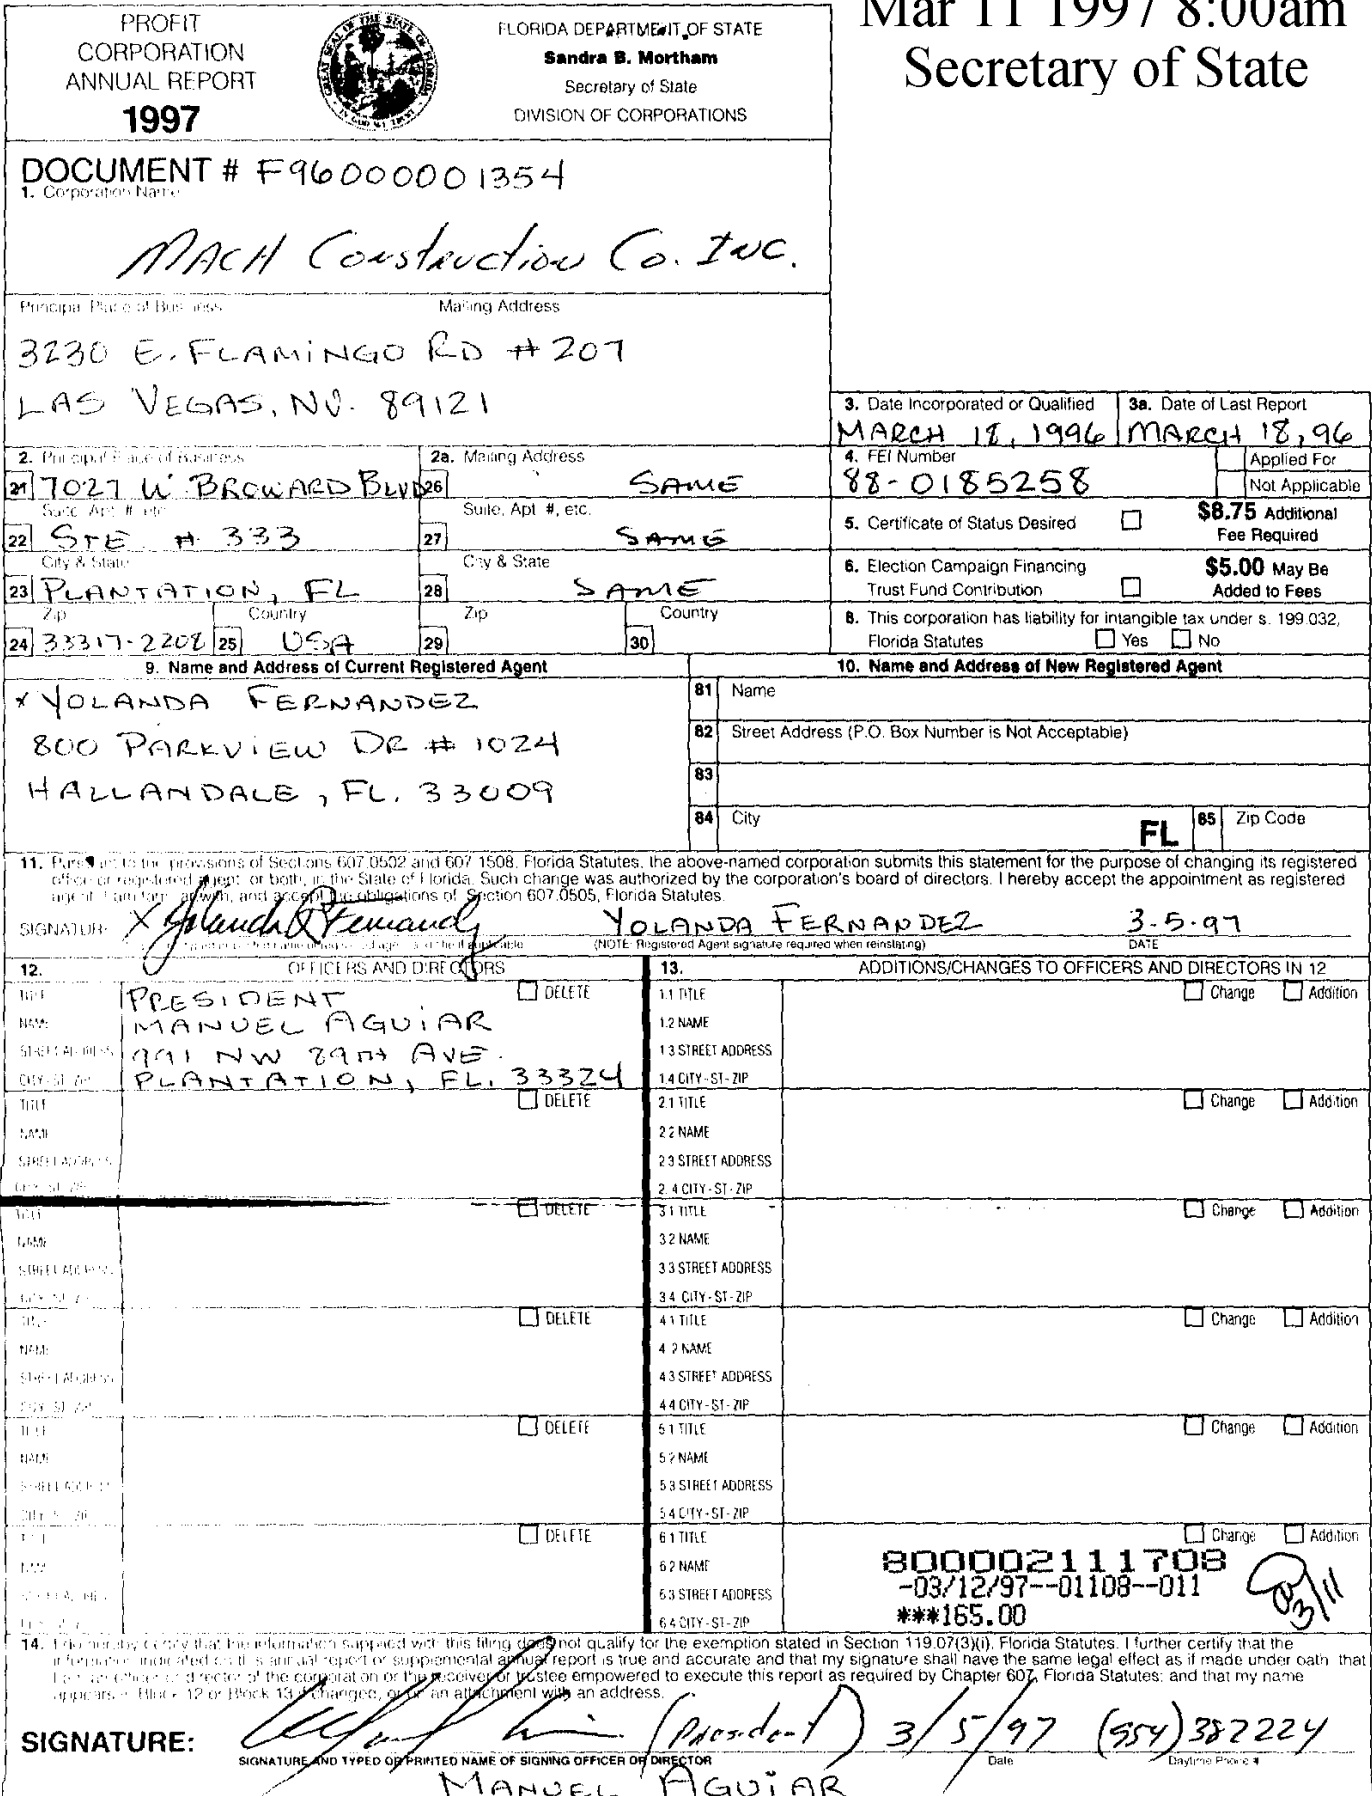 PROFIT
CORPORATION
ANNUAL REPORT
1997
FLORIDA DEPARTMENT OF STATE
Sandra B. Mortham
Secretary of State
DIVISION OF CORPORATIONS
Mar 11 1997 8:00am
Secretary of State
DOCUMENT # F96000001354
1. Corporation Name
MACH Construction Co. INC.
Principal Place of Business Mailing Address
3230 E. FLAMINGO RD # 207
LAS VEGAS, NV. 89121
3. Date Incorporated or Qualified 3a. Date of Last Report
MARCH 18, 1996 MARCH 18, 96
2. Principal Place of Business 2a. Mailing Address
21 7027 W BROWARD BLVD 26 SAME
4. FEI Number Applied For
88-0185258 Not Applicable
Suite, Apt. #, etc. Suite, Apt. #, etc.
22 STE # 333 27 SAME
5. Certificate of Status Desired $8.75 Additional
Fee Required
City & State City & State
23 PLANTATION, FL 28 SAME
6. Election Campaign Financing $5.00 May Be
Trust Fund Contribution Added to Fees
Zip Country Zip Country
24 33317-2208 25 USA 29 30
8. This corporation has liability for intangible tax under s. 199.032,
Florida Statutes Yes No
9. Name and Address of Current Registered Agent
x YOLANDA FERNANDEZ
800 PARKVIEW DR # 1024
HALLANDALE, FL. 33009
10. Name and Address of New Registered Agent
81 Name
82 Street Address (P.O. Box Number is Not Acceptable)
83
84 City FL 85 Zip Code
11. Pursuant to the provisions of Sections 607.0502 and 607.1508, Florida Statutes, the above-named corporation submits this statement for the purpose of changing its registered
office or registered agent, or both, in the State of Florida. Such change was authorized by the corporation's board of directors. I hereby accept the appointment as registered
agent. I am familiar with, and accept the obligations of, Section 607.0505, Florida Statutes.
SIGNATURE X Yolanda Fernandez YOLANDA FERNANDEZ 3-5-97
(NOTE: Registered Agent signature required when reinstating) DATE
12. OFFICERS AND DIRECTORS
TITLE PRESIDENT DELETE
NAME MANUEL AGUIAR
STREET ADDRESS 991 NW 89TH AVE.
CITY-ST-ZIP PLANTATION, FL. 33324
TITLE DELETE
NAME
STREET ADDRESS
CITY-ST-ZIP
TITLE DELETE
NAME
STREET ADDRESS
CITY-ST-ZIP
TITLE DELETE
NAME
STREET ADDRESS
CITY-ST-ZIP
TITLE DELETE
NAME
STREET ADDRESS
CITY-ST-ZIP
TITLE DELETE
NAME
STREET ADDRESS
CITY-ST-ZIP
13. ADDITIONS/CHANGES TO OFFICERS AND DIRECTORS IN 12
1.1 TITLE Change Addition
1.2 NAME
1.3 STREET ADDRESS
1.4 CITY-ST-ZIP
2.1 TITLE Change Addition
2.2 NAME
2.3 STREET ADDRESS
2.4 CITY-ST-ZIP
3.1 TITLE Change Addition
3.2 NAME
3.3 STREET ADDRESS
3.4 CITY-ST-ZIP
4.1 TITLE Change Addition
4.2 NAME
4.3 STREET ADDRESS
4.4 CITY-ST-ZIP
5.1 TITLE Change Addition
5.2 NAME
5.3 STREET ADDRESS
5.4 CITY-ST-ZIP
6.1 TITLE Change Addition
6.2 NAME 800002111708
6.3 STREET ADDRESS -03/12/97--01108--011
6.4 CITY-ST-ZIP ***165.00
3/11
14. I do hereby certify that the information supplied with this filing does not qualify for the exemption stated in Section 119.07(3)(i), Florida Statutes. I further certify that the
information indicated on this annual report or supplemental annual report is true and accurate and that my signature shall have the same legal effect as if made under oath; that
I am an officer or director of the corporation or the receiver or trustee empowered to execute this report as required by Chapter 607, Florida Statutes; and that my name
appears in Block 12 or Block 13 if changed, or on an attachment with an address.
SIGNATURE: (President) 3/5/97 (954) 382224
SIGNATURE AND TYPED OR PRINTED NAME OF SIGNING OFFICER OR DIRECTOR Date Daytime Phone #
MANUEL AGUIAR